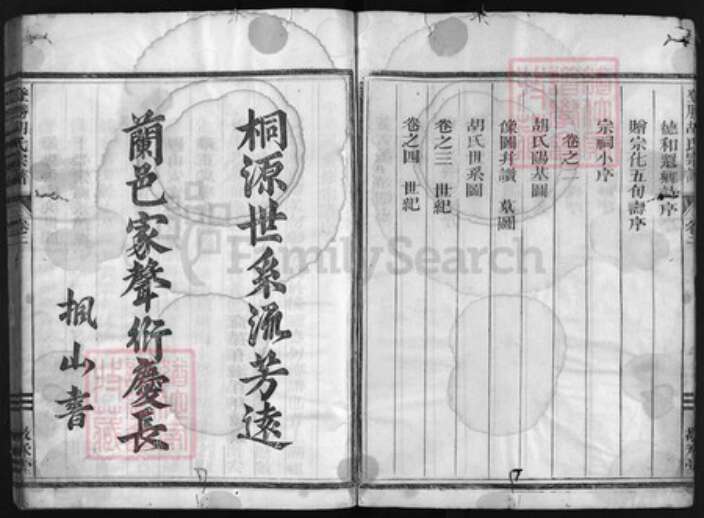 贈宗化五旬壽序
宗祠小序
卷之二
胡氏陽基圖
像圖并讚 墓圖
胡氏世系圖
卷之三 世紀
卷之四 世紀
桐源世系流芳遠
蘭邑家聲衍慶長
楓山書
FamilySearch